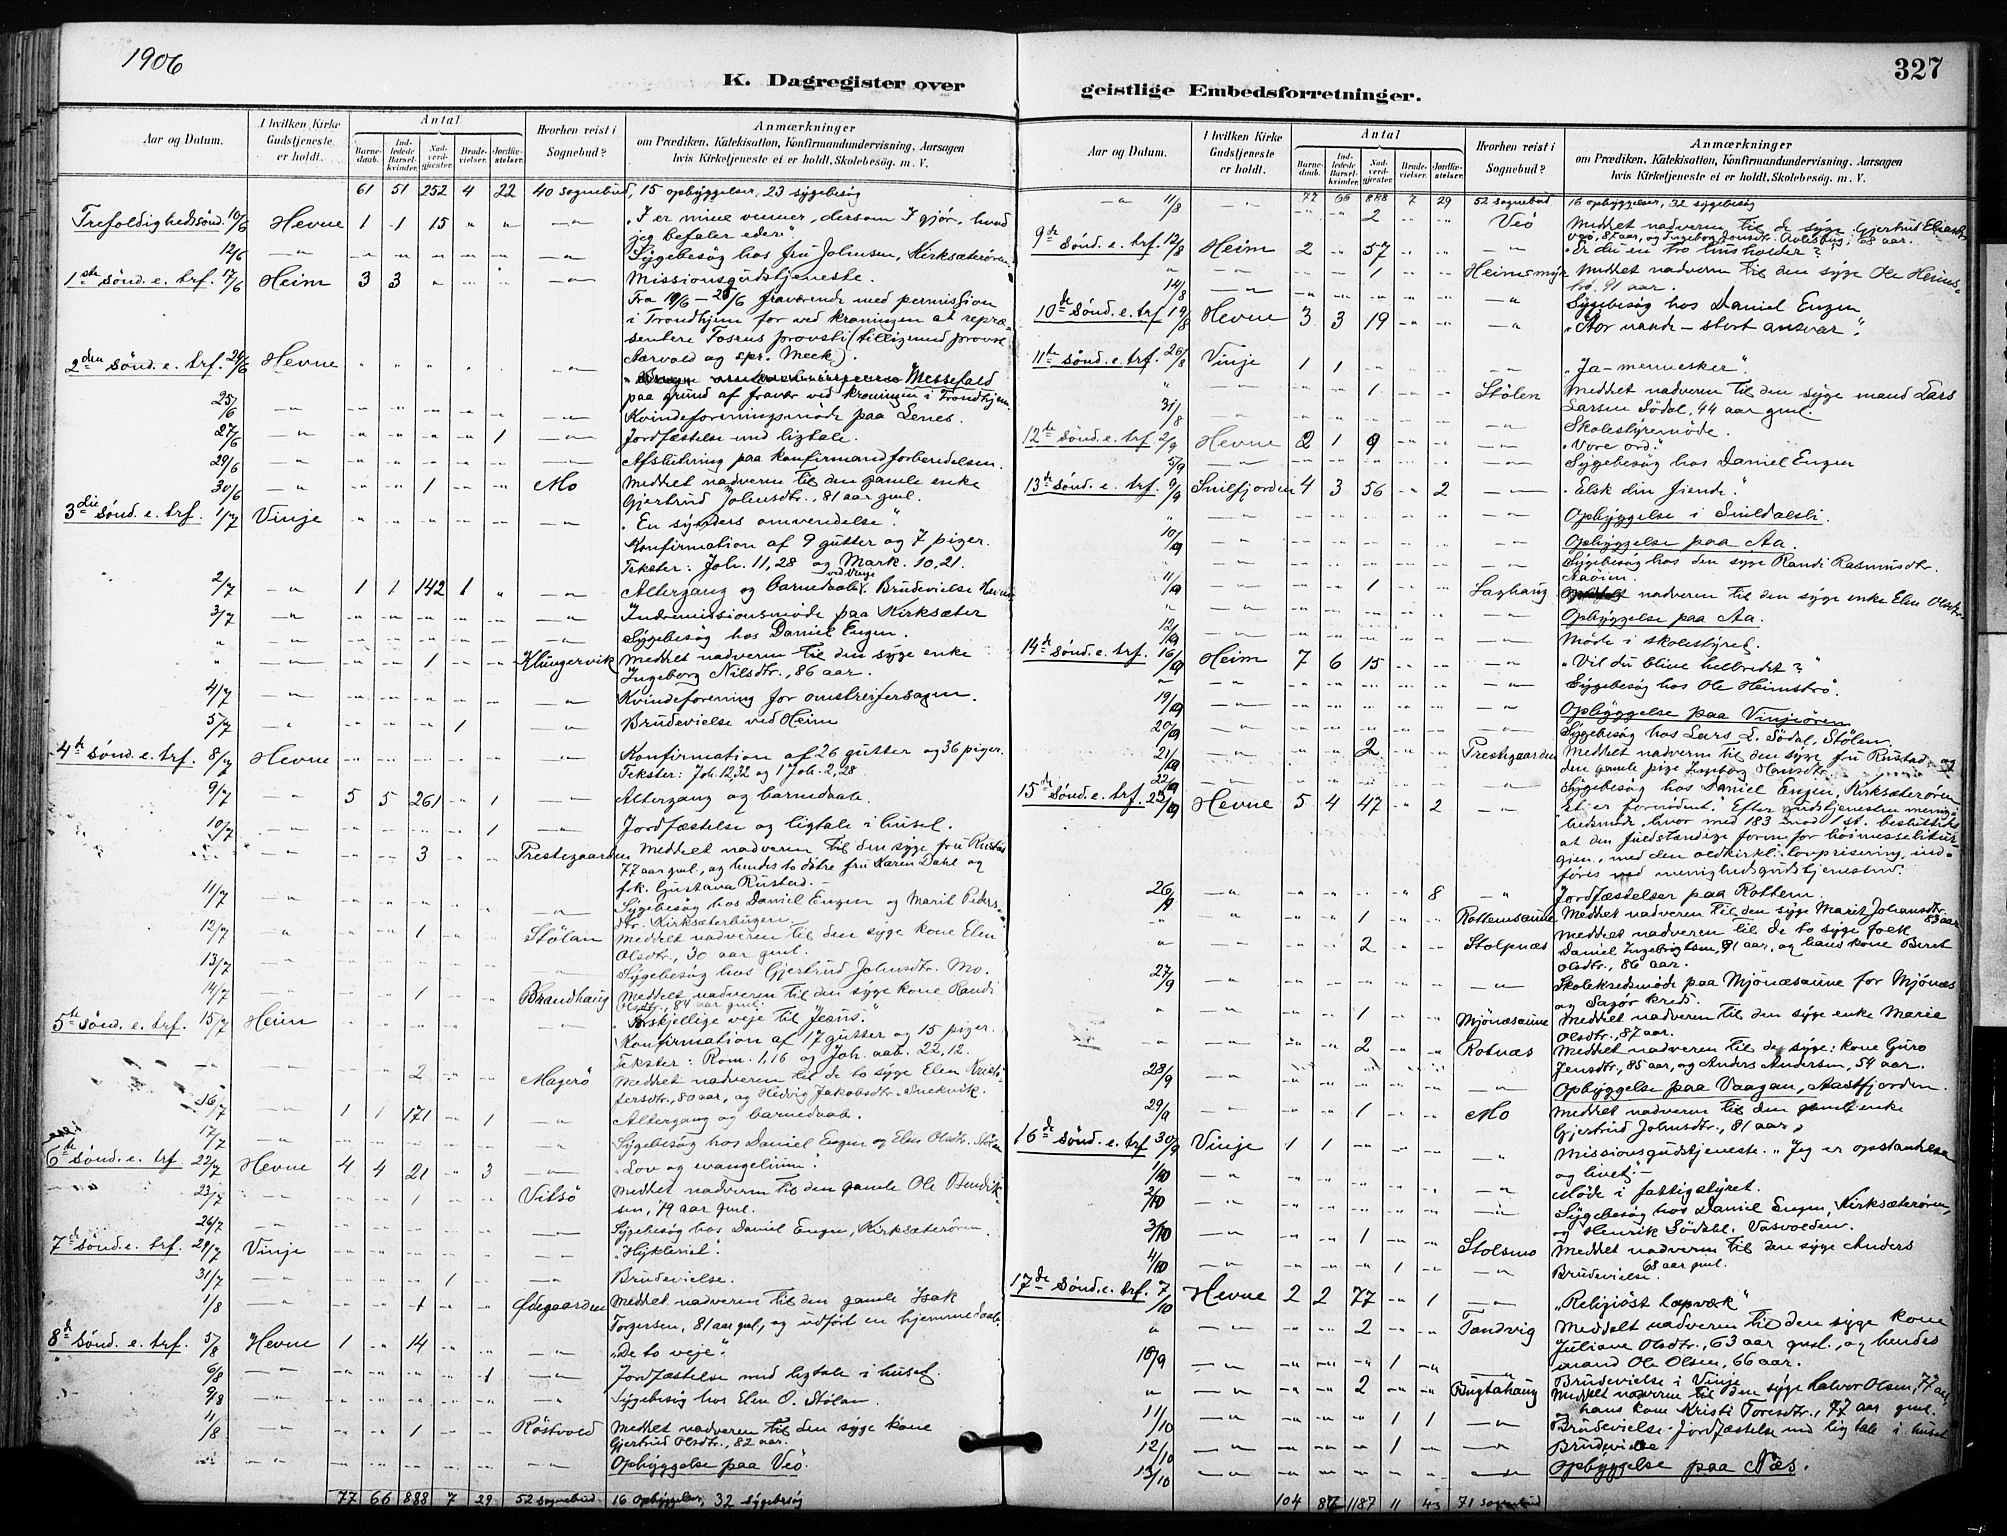 1906
K. Dagregister over
Aar og Datum.
I hvilken Kirke Gudstjeneste er holdt.
Antal
Barnedaab.
Indledede Barselkvinder.
Nadverdgjester.
Brudevielser.
Jordfæstelser.
Hvorhen reist i Sognebud?
Anmærkninger
om Prædiken, Katekisation, Konfirmandundervisning, Aarsagen
hvis Kirketjeneste ei er holdt, Skolebesøg. m. V.
61 51 252 4 22 40 sognebud, 15 opbyggelser, 23 sygebesøg
Trefoldighedssønd. 10/6 Hevne 1 1 15 " " —"— "I er mine venner, dersom I gjør, hvad
jeg befaler eder".
12/6 —"— " " " " " —"— Sygebesøg hos fru Johnsen, Kirksæterøren
1ste sønd. e. trf. 17/6 Heim 3 3 " " " —"— Missionsgudstjeneste.
Fra 19/6 – 25/6 fraværende med permission
i Trondhjem for ved kroningen at repræ-
sentere Fosens provsti (tilligemed provst
Aarvold og spr. Meek).
2den sønd. e. trf. 24/6 Hevne " " " " " —"— Messefald
paa grund af fravær ved kroningen i Trondhjem
25/6 —"— " " " " " —"— Kvindeforeningsmøde paa Lenes.
27/6 —"— " " " " 1 —"— Jordfæstelse med ligtale.
29/6 —"— " " " " " —"— Afslutning paa konfirmandforberedelsen.
30/6 —"— " " 1 " " Mo Meddelt nadveren til den gamle enke
Gjertrud Johnsdtr., 81 aar gml.
3die sønd. e. trf. 1/7 Vinje " " " " " —"— "En synders omvendelse".
Konfirmation af 9 gutter og 7 piger.
Tekster: Joh. 11,28 og Mark. 10,21.
2/7 —"— 1 1 142 1 " —"— Altergang og barnedaab ved Vinje. Brudevielse Hevne
3/7 —"— " " " " " —"— Indremissionsmøde paa Kirksæter
" —"— " " " " " —"— Sygebesøg hos Daniel Engen.
" —"— " " 1 " " Klingervik Meddelt nadveren til den syge enke
Ingeborg Nilsdtr., 86 aar.
4/7 —"— " " " " " —"— Kvindeforening for omstreifersagen.
5/7 —"— " " " 1 " —"— Brudevielse ved Heim
4de sønd. e. trf. 8/7 Hevne " " " " " —"— Konfirmation af 26 gutter og 36 piger.
Tekster: Joh. 12,32 og 1 Joh. 2,28
9/7 —"— 5 5 261 " 1 —"— Altergang og barnedaab.
10/7 —"— " " " " 1 —"— Jordfæstelse og ligtale i huset.
" —"— " " 3 " " Prestegaarden Meddelt nadveren til den syge fru Rustad
77 aar gml., og hendes to døtre fru Karen Dahl og
frk. Gustava Rustad.
11/7 —"— " " " " " —"— Sygebesøg hos Daniel Engen og Marit Peders-
dtr. Kirksæterhagen.
12/7 —"— " " 1 " " Stølan Meddelt nadveren til den syge kone Elen
Olsdtr., 30 aar gml.
13/7 —"— " " " " " —"— Sygebesøg hos Gjertrud Johnsdtr. Mo.
14/7 —"— " " 1 " " Brandhaug Meddelt nadveren til den syge kone Randi
Olsdtr., 84 aar gml.
5te sønd. e. trf. 15/7 Heim " " " " " —"— "Forskjellige veje til Jesus".
Konfirmation af 17 gutter og 15 piger.
Tekster: Rom. 1,16 og Joh. aab. 22,12.
—"— —"— " " 2 " " Magerø Meddelt nadveren til de to syge Elen Kristo-
fersdtr., 80 aar, og Hedvig Jakobsdtr. Snekvik.
16/7 —"— 1 1 171 " 1 —"— Altergang og barnedaab.
17/7 —"— " " " " " —"— Sygebesøg hos Daniel Engen og Elen Olsdtr. Stølan
6te sønd. e. trf. 22/7 Hevne 4 4 21 " 3 —"— "Lov og evangelium".
23/7 —"— " " 1 " " Vitsø Meddelt nadveren til den gamle Ole Bendrik-
sen, 79 aar gml.
26/7 —"— " " " " " —"— Sygebesøg hos Daniel Engen, Kirksæterøren.
7de sønd. e. trf. 29/7 Vinje " " " " " —"— "Hykleriet".
31/7 —"— " " " 1 " —"— Brudevielse.
1/8 —"— " " 1 " " Ødegaarden Meddelt nadveren til den gamle Isak
Torgersen, 81 aar gml., og udført en hjemmedaab.
8de sønd. e. trf. 5/8 Hevne 1 " 14 " " —"— "De to veje".
6/8 —"— " " " " 1 —"— Jordfæstelse med ligtale i huset.
9/8 —"— " " " " " —"— Sygebesøg hos Elen O. Stølan.
11/8 —"— " " 1 " " Røstvold Meddelt nadveren til den syge kone
Gjertrud Olsdtr., 82 aar.
Opbyggelse paa Veø.
77 66 888 7 29 52 sognebud 16 opbyggelser, 32 sygebesøg
327
geistlige Embedsforretninger.
Aar og Datum.
I hvilken Kirke Gudstjeneste er holdt.
Antal
Barnedaab.
Indledede Barselkvinder.
Nadverdgjester.
Brudevielser.
Jordfæstelser.
Hvorhen reist i Sognebud?
Anmærkninger
om Prædiken, Katekisation, Konfirmandundervisning. Aarsagen
hvis Kirketjeneste ei er holdt, Skolebesøg. m. V.
77 66 888 7 29 52 sognebud 16 opbyggelser, 32 sygebesøg
—"— 11/8 —"— " " 2 " " Veø Meddelt nadveren til de syge Gjertrud
Veø, 87 aar, og Ingebor Jonsdtr. 68 aar.
9de sønd. e. trf. 12/8 Heim 2 " 57 " " —"— "Er du en tro husholder?"
" —"— " " 1 " " Heimsmyr Meddelt nadveren til den syge Ole Heims-
trø, 91 aar.
14/8 —"— " " " " " —"— Sygebesøg hos Daniel Engen
10de sønd. e. trf 19/8 Hevne 3 3 19 " " —"— "Stor naade – stort ansvar".
11te sønd. e. trf. 26/8 Vinje 1 1 " " " —"— "Ja-mennesker".
" —"— " " 1 " " Stølen Meddelt nadveren til den syge mand Lars
Larsen Sødal, 44 aar gml.
31/8 —"— " " " " " —"— Skolestyremøde.
12te sønd. e. trf 2/9 Hevne 2 1 9 " " —"— "Vore ord."
5/9 —"— " " " " " —"— Sygebesøg hos Daniel Engen
13de sønd. e. trf. 9/9 Snilfjorden 4 3 56 " 2 —"— "Elsk din fiende".
" —"— " " " " " —"— Opbyggelse i Snildalsli.
10/9 —"— " " " " " —"— Opbyggelse paa Aa.
" —"— " " " " " —"— Sygebesøg hos den syge Randi Rasmusdtr.
Aaøien.
11/9 —"— " " 1 " " Saghaug nadveren til den syge enke Elen Olsdtr.
" —"— " " " " " —"— Opbyggelse paa Aa.
12/9 —"— " " " " " —"— Møde i skolestyret.
14de sønd. e. trf. 16/9 Heim 7 6 15 " " —"— "Vil du blive helbredet?"
" —"— " " " " " —"— Sygebesøg hos Ole Heimstrø.
19/9 —"— " " " " " —"— Opbyggelse paa Vinjeøren
20/9 —"— " " " " " —"— Sygebesøg hos Lars L. Sødal, Stølen
21/9 —"— " " 2 " " Prestegaarden Meddelt nadveren til den syge fru Rustad og
den gamle pige Ingebor Hansdtr.
22/9 —"— " " " " " —"— Sygebesøg hos Daniel Engen, Kirksæterøren
15de sønd. e. trf. 23/9 Hevne 5 4 47 " 2 —"— "Et er fornødent". Efter gudstjenesten menig-
hedsmøde, hvor med 183 mod 1 st. besluttedes
at den fuldstændige form for høimesselitur-
gien, med den oldkirkl. lovprisning, ind-
føres ved menighedsgudstjenesten.
26/9 —"— " " " " 8 " Jordfæstelser paa Rottem.
" —"— " " 1 " " Rottemsaune Meddelt nadveren til den syge Marit Johansdtr. 83 aar
" —"— " " 2 " " Stolpnæs Meddelt nadveren til de to syge folk
Daniel Ingebrigtsen, 91 aar, og hans kone Beret
Olsdtr., 86 aar.
27/9 —"— " " " " " —"— Skolekredsmøde paa Mjønæsaune for Mjønæs
og Sagør kreds.
" —"— " " 1 " " Mjønæsaune Meddelt nadveren til den syge enke Marie
Olsdtr., 87 aar.
" —"— " " 2 " " Rotnæs Meddelt nadveren til de syge: kone Guro
Jensdtr., 85 aar, og Anders Andersen, 54 aar.
28/9 —"— " " " " " —"— Opbyggelse paa Vaagan, Aastfjorden.
29/9 —"— " " 1 " " Mo Meddelt nadveren til den gamle enke
Gjertrud Johnsdtr., 81 aar,
16de sønd. e. trf 30/9 Vinje 1 1 " " " —"— Missionsgudstjeneste. "Jeg er opstandelsen
og livet".
1/10 —"— " " " " " —"— Møde i fattigstyret.
2/10 —"— " " " " " —"— Sygebesøg hos Daniel Engen, Kirksæterøren,
og Henrik Sødahl, Vasvolden.
3/10 —"— " " 1 " " Stolsmo Meddelt nadveren til den syge Anders
68 aar gml.
4/10 —"— " " " 1 " —"— Brudevielse.
17de sønd. e. trf. 7/10 Hevne 2 2 77 " 1 —"— "Religiøst tapvæk"
" —"— " " 2 " " Tandvig Meddelt nadveren til den syge kone
Juliane Olsdtr., 63 aar gml., og hendes
mand Ole Olsen, 66 aar.
10/9 —"— " " " 1 " —"— Brudevielse i Vinje
" —"— " " 2 " " Bugtahaug Meddelt nadveren til den syge Halvor Olsen, 77 aar
hans kone Kristi Toresdtr., 77 aar gml.
11/10 —"— " " " 1 1 —"— Brudevielse – Jordfæstelse med ligtale i huset
12/10 —"— " " " 1 " —"— Brudevielse
13/10 —"— " " " " " —"— Opbyggelse paa Næs.
104 87 1187 11 43 71 sognebud